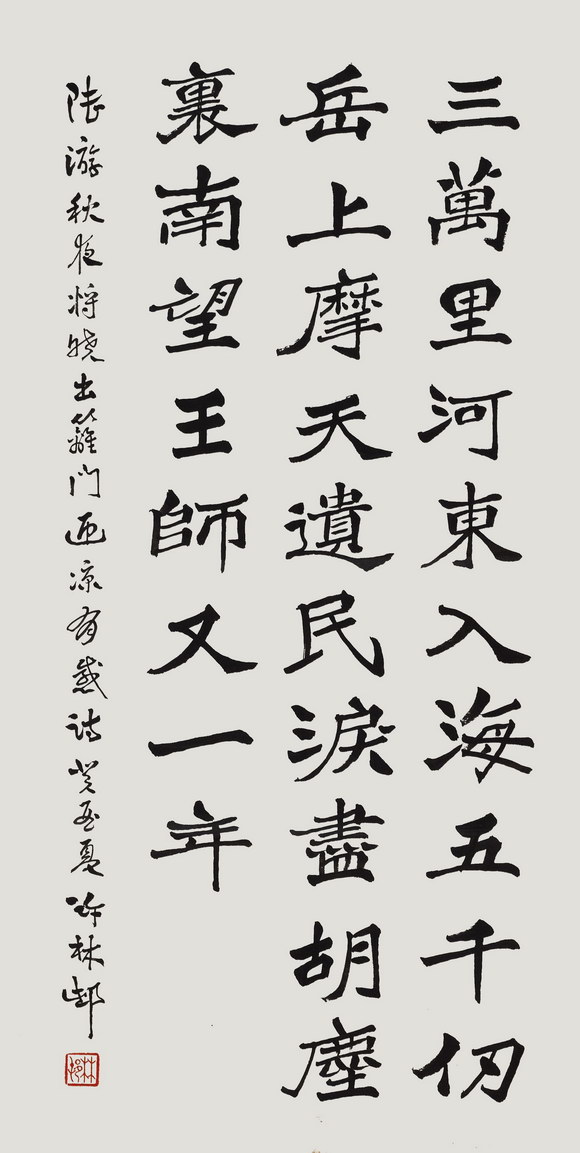 三萬里河東入海五千仞
岳上摩天遺民淚盡胡塵
裏南望王師又一年
陸游秋夜将曉出籬门迎凉有感詩癸丑夏許林邨
林邨